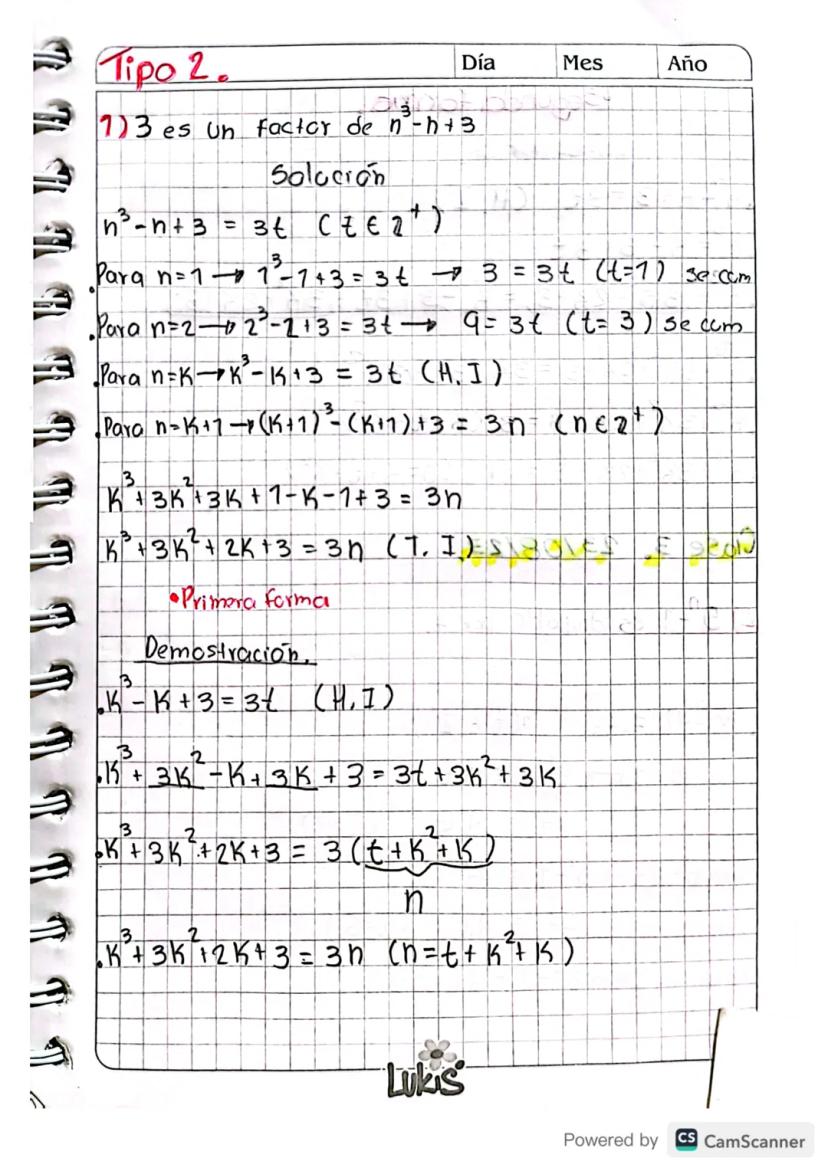 Tipo 2.
Día Mes Año
1) 3 es un factor de n³-n+3
Solución
n³-n+3 = 3t (t ∈ z⁺)
.Para n=1 → 1³-1+3 = 3t → 3 = 3t (t=1) se cum
.Para n=2 → 2³-2+3 = 3t → 9 = 3t (t=3) se cum
.Para n=K → K³-K+3 = 3t (H.I)
.Para n=K+1 → (K+1)³-(K+1)+3 = 3n (n ∈ z⁺)
K³+3K²+3K+1-K-1+3 = 3n
K³+3K²+2K+3 = 3n (T.I)
•Primera forma
Demostración.
.K³-K+3 = 3t (H.I)
.K³+3K²-K+3K+3 = 3t+3K²+3K
.K³+3K²+2K+3 = 3(t+K²+K)
n
.K³+3K²+2K+3 = 3n (n=t+K²+K)
Lukis
Powered by CS CamScanner